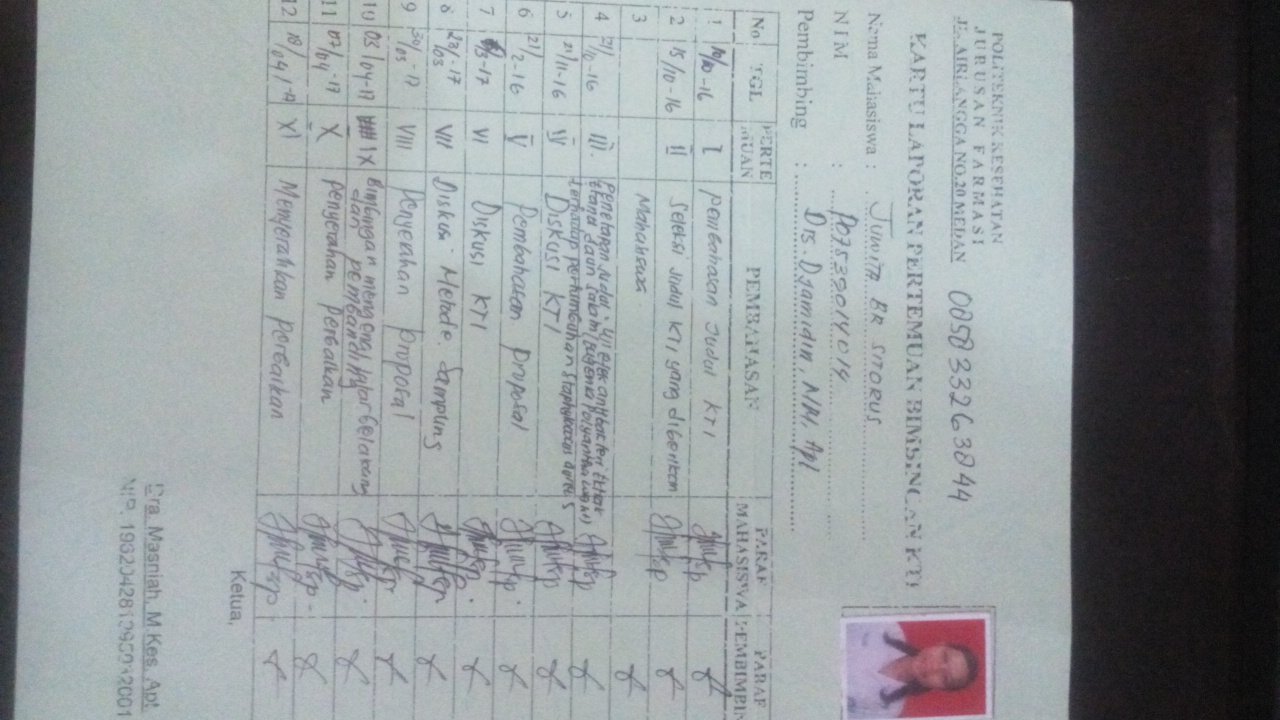 POLITEKNIK KESEHATAN
JURUSAN FARMASI
JL. AIRLANGGA NO.20 MEDAN
085833263844
KARTU LAPORAN PERTEMUAN BIMBINGAN KTI
Nama Mahasiswa : Juwita BR SITORUS
NIM : P07539014014
Pembimbing : Drs. Djamidin, MM, Apt
No TGL PERTEMUAN PEMBAHASAN PARAF MAHASISWA PARAF
1 I pembahasan Judul KTI
2 15/10-16 II Seleksi Judul KTI yang diberikan
3 Mahasiswa
4 21/10-16 III. Penetapan Judul : Uji efek antibakteri Ekstrak Etanol daun Salam (Eugenia Polyantha Wight)
terhadap pertumbuhan Staphylococcus aureus
5 21/11-16 IV DISKUSI KTI
6 21/12-16 V Pembahasan proposal
7 VI DISKUSI KTI
8 23/03-17 VII DISKUSI Metode Sampling
9 30/03-17 VIII Penyerahan proposal
10 03/04-17 IX Bimbingan mengenai lapor belakang
dan pembanding
11 07/04-17 X penyerahan perbaikan
12 18/04-17 XI Menyerahkan perbaikan
Ketua,
Dra. Masniah, M.Kes, Apt